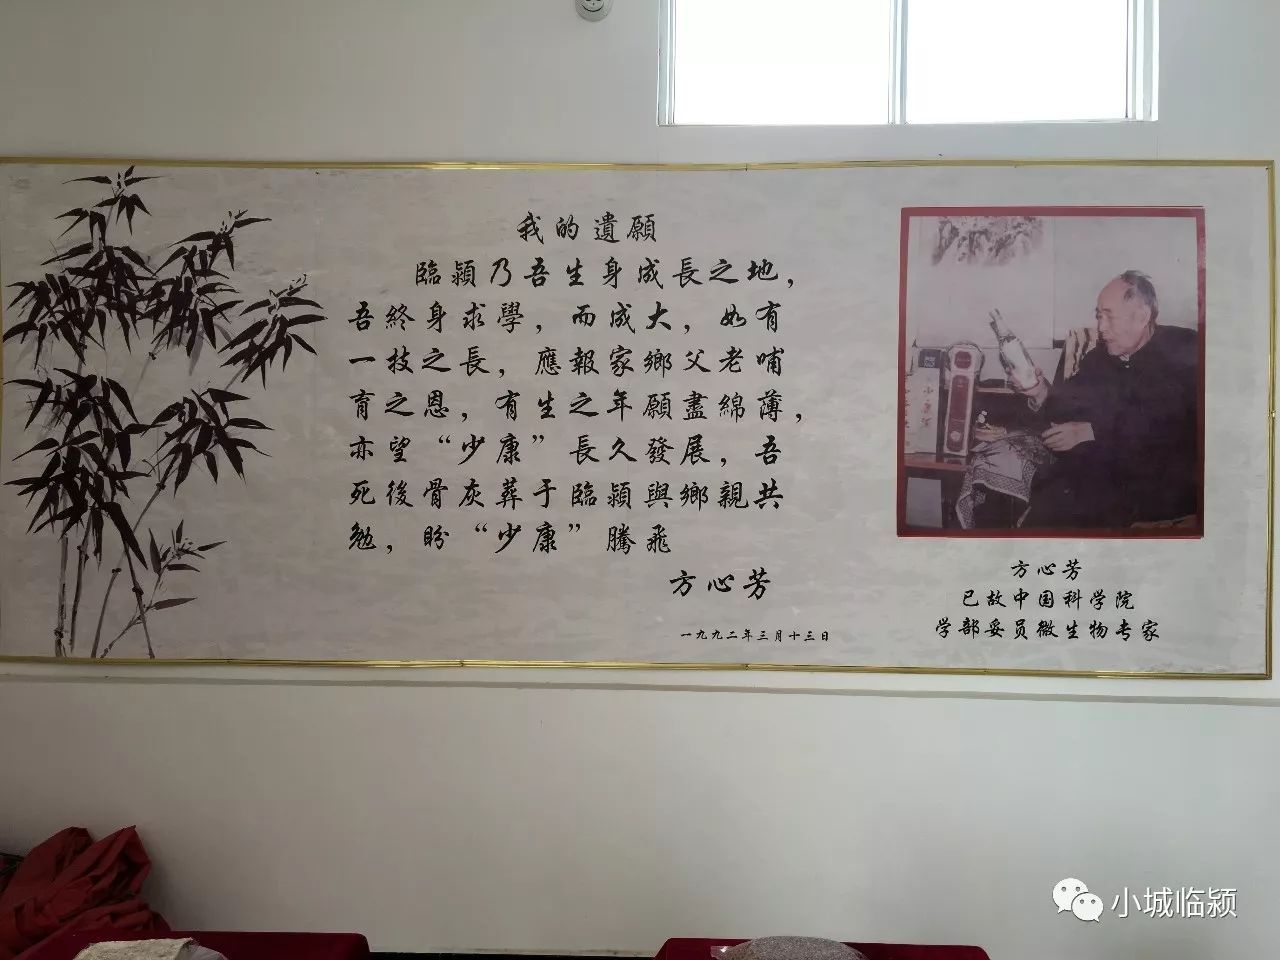 我的遺願
臨潁乃吾生身成長之地，
吾終身求學，而成大，如有
一技之長，應報家鄉父老哺
育之恩，有生之年願盡綿薄，
亦望“少康”長久發展，吾
死後骨灰葬于臨潁與鄉親共
勉，盼“少康”騰飛
方心芳
一九九二年三月十三日
方心芳
已故中国科学院
学部委员微生物专家
小城临颍